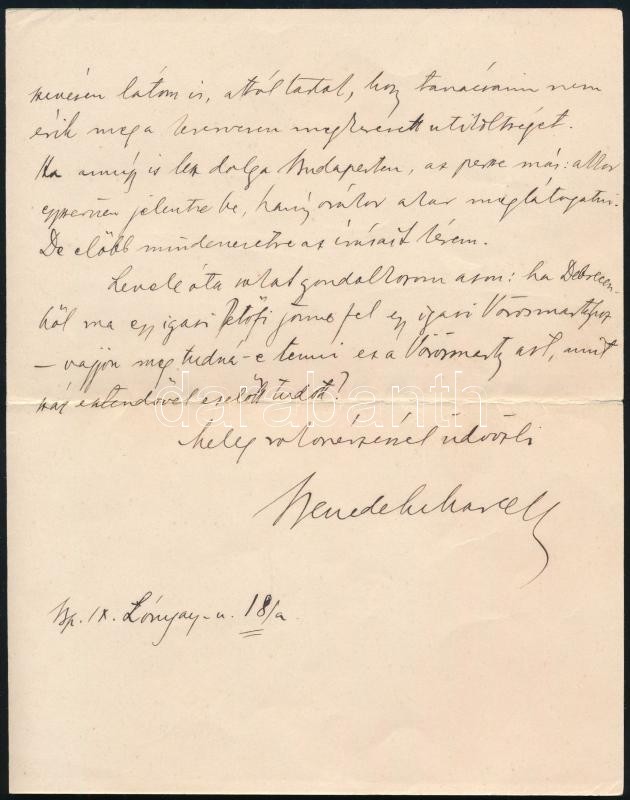 szívesen látom is, attól tartok, hogy tanácsaim nem
érik meg a keservesen megkeresett útiköltséget.
Ha amúgy is lesz dolga Budapesten, az persze más: akkor
egyszerűen jelentse be, hány órakor akar meglátogatni.
De előbb mindenesetre az írásait kérem.
Levele óta sokat gondolkozom azon: ha Debrecen-
ből ma egy igazi Petőfi jönne fel egy igazi Vörösmartyhoz
– vajjon meg tudná-e tenni ez a Vörösmarty azt, amit
száz esztendővel ezelőtt tudott?
Meleg rokonérzéssel üdvözli
Benedek Marcell
Bp. IX. Lónyay-u. 18/a
darabanth